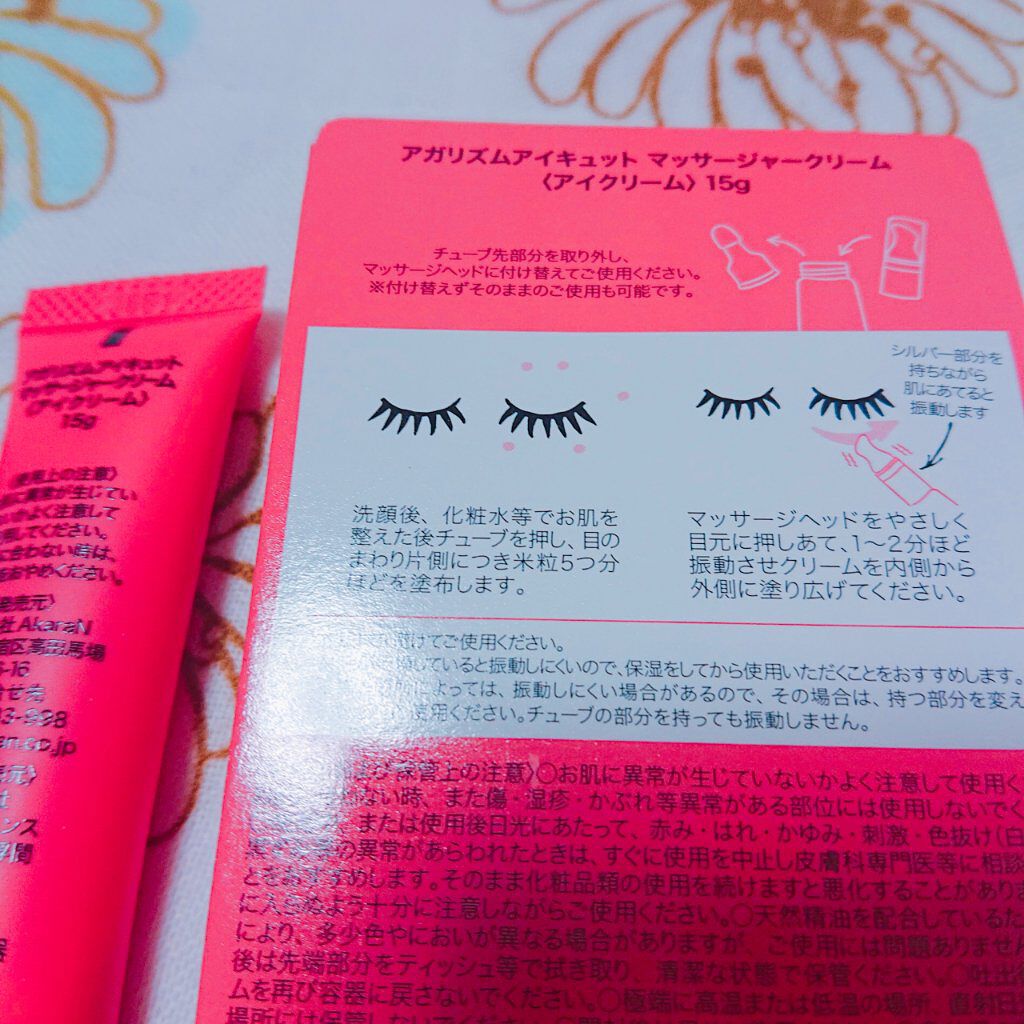 アガリズムアイキュット マッサージャークリーム
〈アイクリーム〉15g
チューブ先部分を取り外し、
マッサージヘッドに付け替えてご使用ください。
※付け替えずそのままのご使用も可能です。
シルバー部分を
持ちながら
肌にあてると
振動します
洗顔後、化粧水等でお肌を
整えた後チューブを押し、目の
まわり片側につき米粒5つ分
ほどを塗布します。
マッサージヘッドをやさしく
目元に押しあて、1〜2分ほど
振動させクリームを内側から
外側に塗り広げてください。
けてご使用ください。
していると振動しにくいので、保湿をしてから使用いただくことをおすすめします。
によっては、振動しにくい場合があるので、その場合は、持つ部分を変え
使用ください。チューブの部分を持っても振動しません。
び保管上の注意〉○お肌に異常が生じていないかよく注意して使用く
ない時、また傷・湿疹・かぶれ等異常がある部位には使用しないでく
または使用後日光にあたって、赤み・はれ・かゆみ・刺激・色抜け(白
の異常があらわれたときは、すぐに使用を中止し皮膚科専門医等に相談
とをおすすめします。そのまま化粧品類の使用を続けますと悪化することがありま
に入らぬよう十分に注意しながらご使用ください。○天然精油を配合しているた
により、多少色やにおいが異なる場合がありますが、ご使用には問題ありません
後は先端部分をティッシュ等で拭き取り、清潔な状態で保管ください。○吐出
ムを再び容器に戻さないでください。○極端に高温または低温の場所、直射日
場所には保管しないでください。
アガリズムアイキュット
マッサージャークリーム
〈アイクリーム〉
15g
使用上の注意〉
に異常が生じてい
いかよく注意して
用してください。
に合わない時は、
をおやめください。
発売元〉
社AkaraN
宿区高田馬場
-16
合せ先
3-998
an.co.jp
元〉
ンス